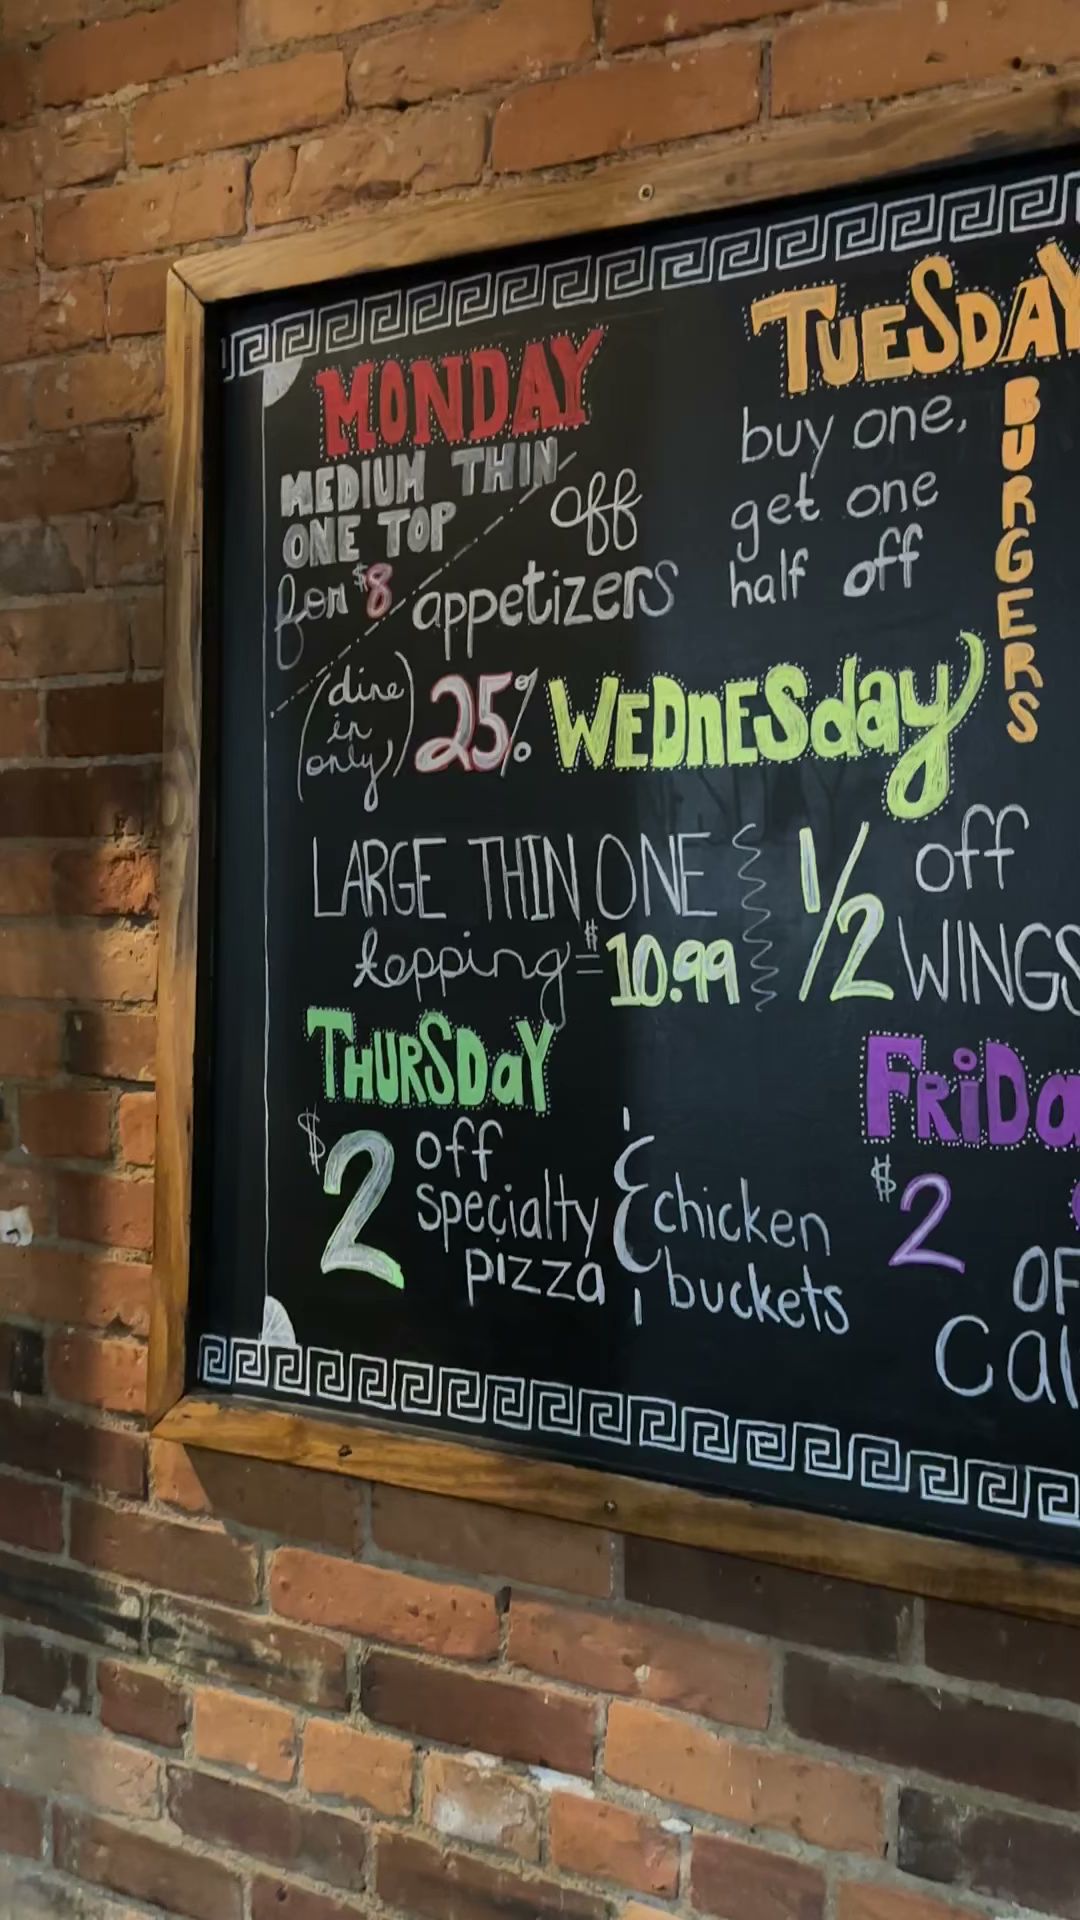 MONDAY
MEDIUM THIN
ONE TOP
for $8
off
appetizers
(dine
in
only)
25%
TUESDAY
buy one,
get one
half off
BURGERS
WEDnESday
LARGE THIN ONE
topping = $10.99
1/2 off
WINGS
THURSDaY
$2 off
specialty
pizza
&
chicken
buckets
FRiDa
$2
OF
Cal